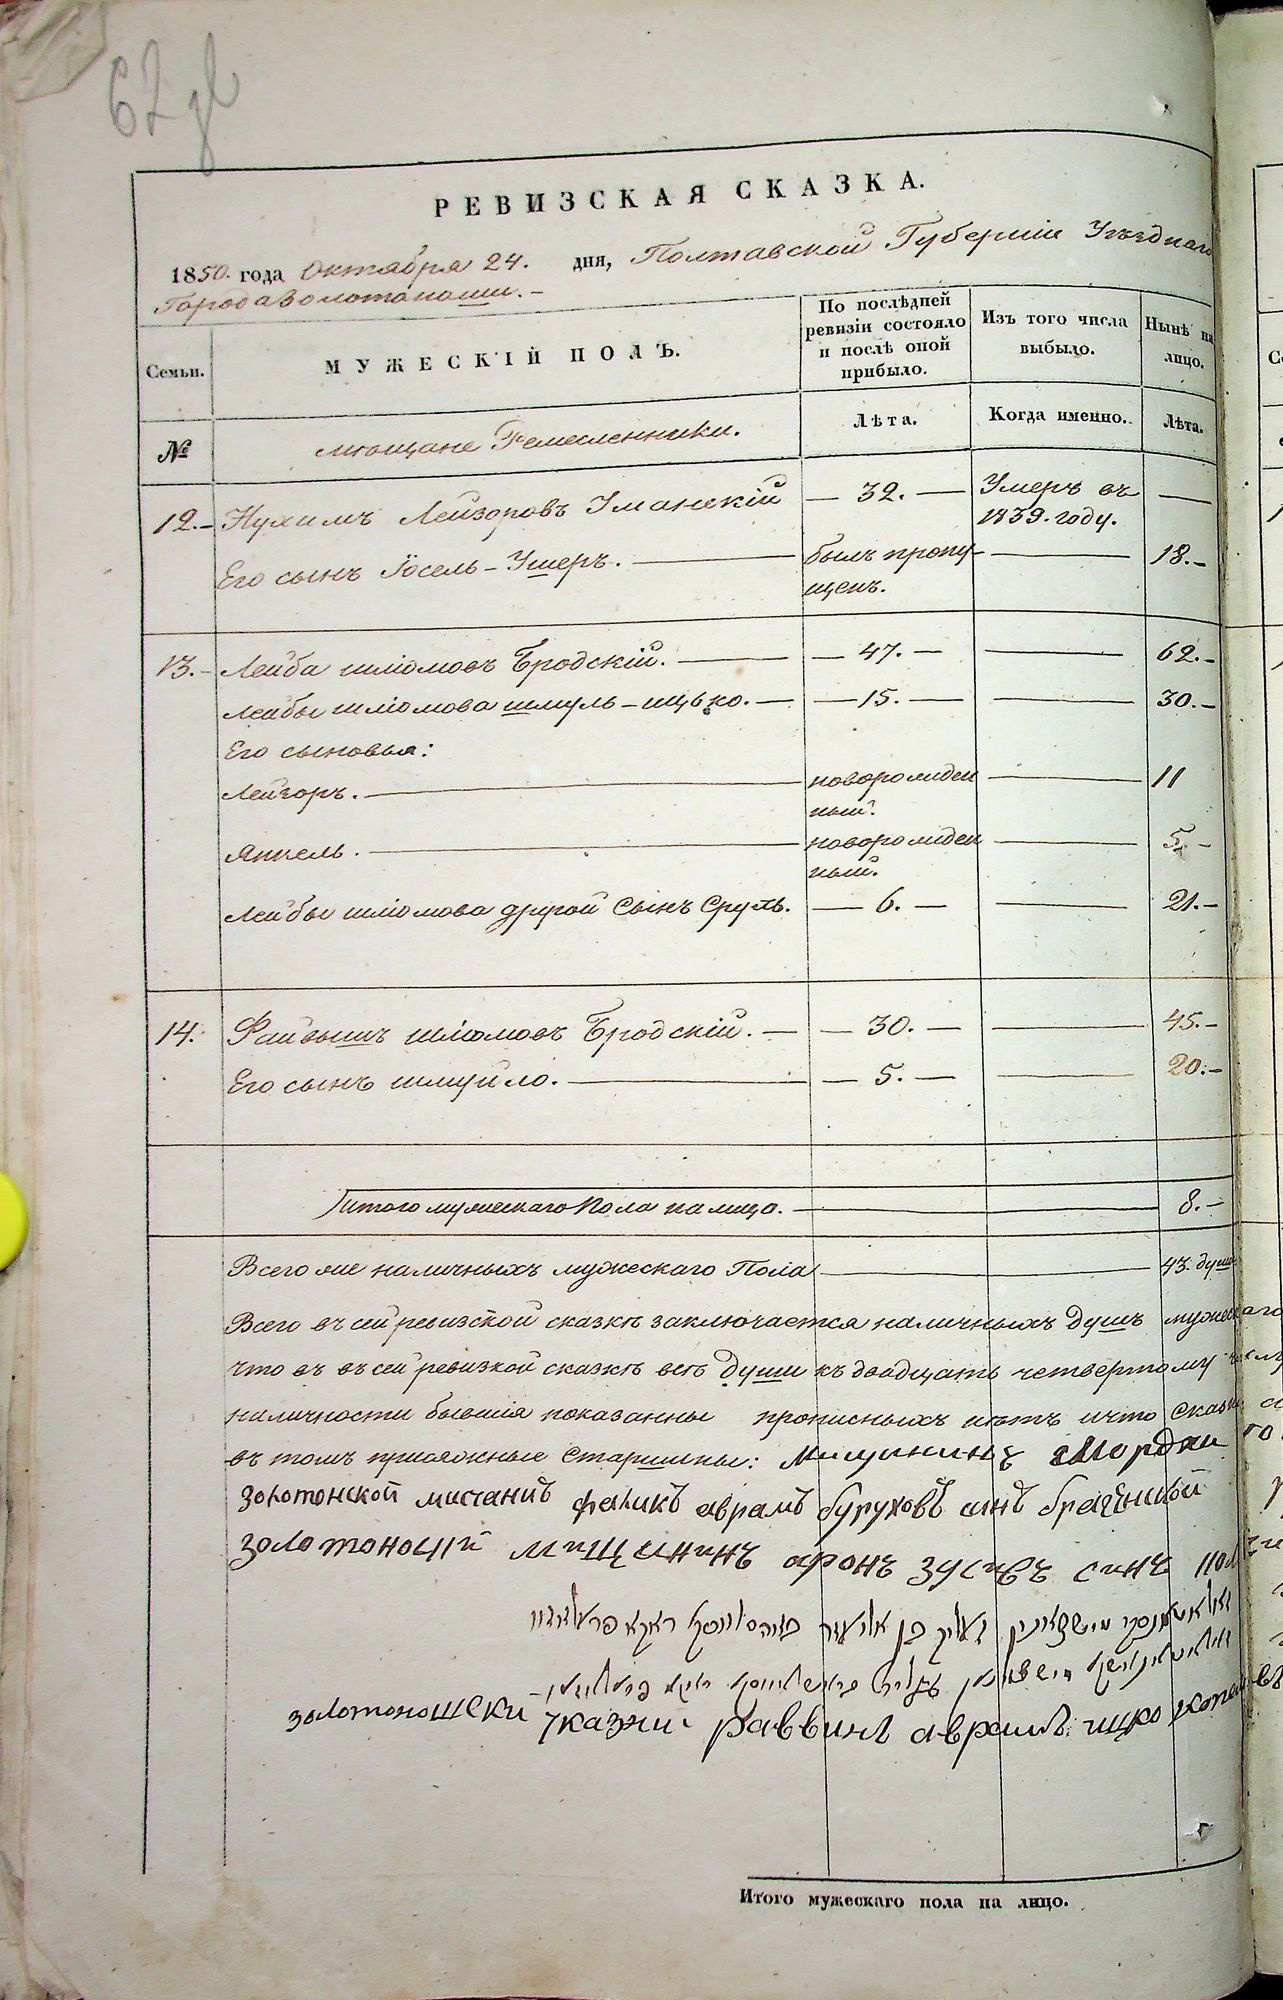 62
РЕВИЗСКАЯ СКАЗКА.
1850. года Октября 24. дня, Полтавской Губерніи Уѣзднаго
Города Золотоноши. –
Семьи.
МУЖЕСКІЙ ПОЛЪ.
По послѣдней
ревизіи состояло
и послѣ оной
прибыло.
Изъ того числа
выбыло.
Нынѣ на
лицо.
№
мѣщане Ремесленники.
Лѣта.
Когда именно.
Лѣта.
12. – Нухимъ Лейзоровъ Уманскій — 32. — Умеръ въ —
1839. году.
Его сынъ Іосель – Ушеръ. — былъ пропу- — 18. –
щенъ.
13. – Лейба Шліомовъ Бродскій. — — 47. — — 62. –
Лейбы Шліомова Шмуль – Ицько. — — 15. — — 30. –
Его сыновья:
Лейзоръ. — новорожден — 11
ный.
Янкель. — новорожден — 5. –
ный.
Лейбы Шліомова другой Сынъ Сруль. — 6. — — 21. –
14. Файвишъ Шліомовъ Бродскій. — — 30. — — 45. –
Его сынъ Шмуйло. — — 5. — — 20. –
Итого мужескаго Пола на лицо. — 8. –
Всего же наличныхъ мужескаго Пола — 43. душ
Всего въ сей ревизской сказкѣ заключается наличныхъ Душъ мужескаго
что въ сей ревизкой сказкѣ всѣ души къ двадцать четвертому
наличности бывшія показанны прописныхъ нѣтъ и что сказк
въ томъ присяжные Старшины: Мищининъ Мордки
золотонской мисчанинъ аврамъ буруховъ синъ
золотоноций мищининъ аронъ зусивъ синъ
золотоношски указни раввинъ аврамъ ицко
Итого мужескаго пола на лицо.